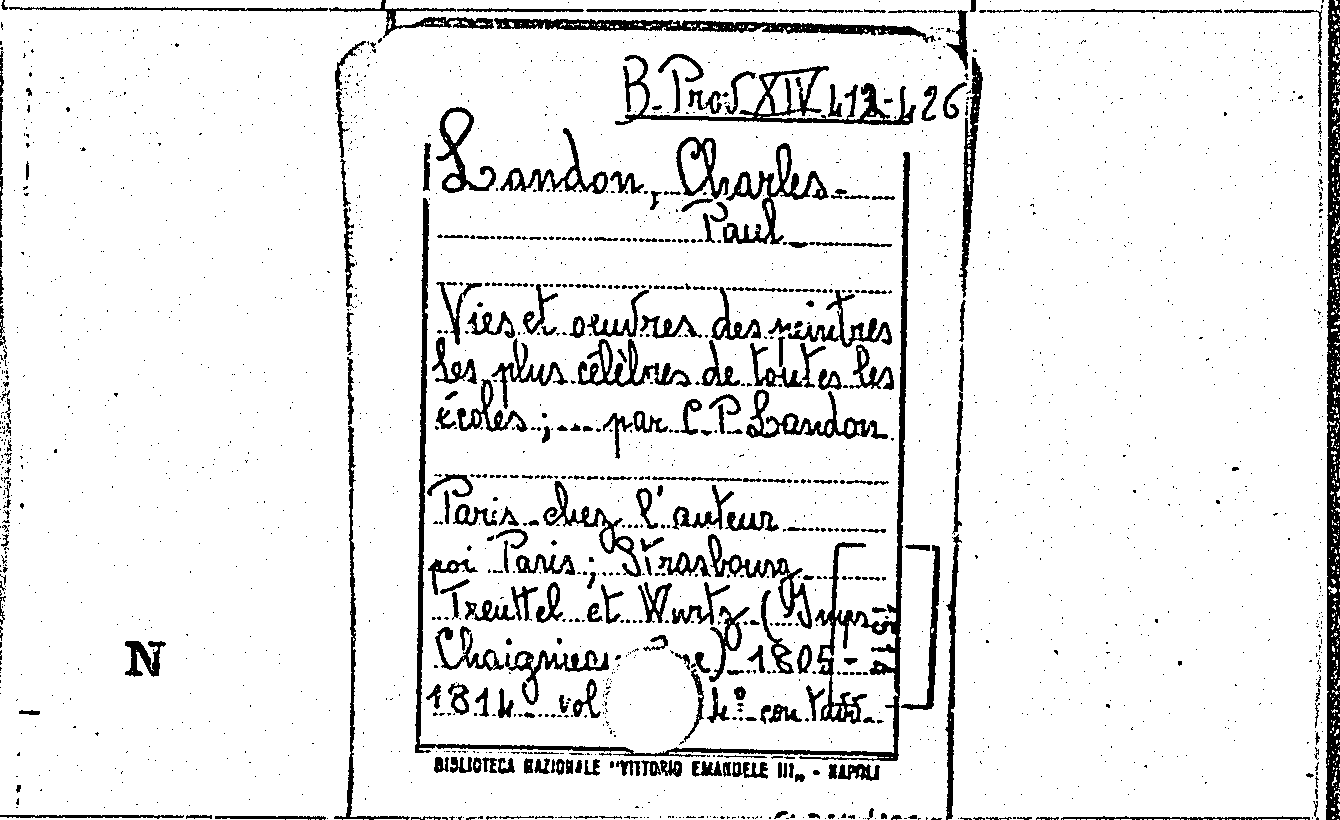 B. Prov. XIV 412-426
Landon, Charles-
Paul
Vies et oeuvres des peintres
les plus célèbres de toutes les
écoles; ... par C. P. Landon
Paris chez l'auteur
poi Paris; Strasbourg
Treuttel et Wurtz (Imp.
1805-
1814 vol 4° con tavv.
BIBLIOTECA NAZIONALE "VITTORIO EMANUELE III„ - NAPOLI
N